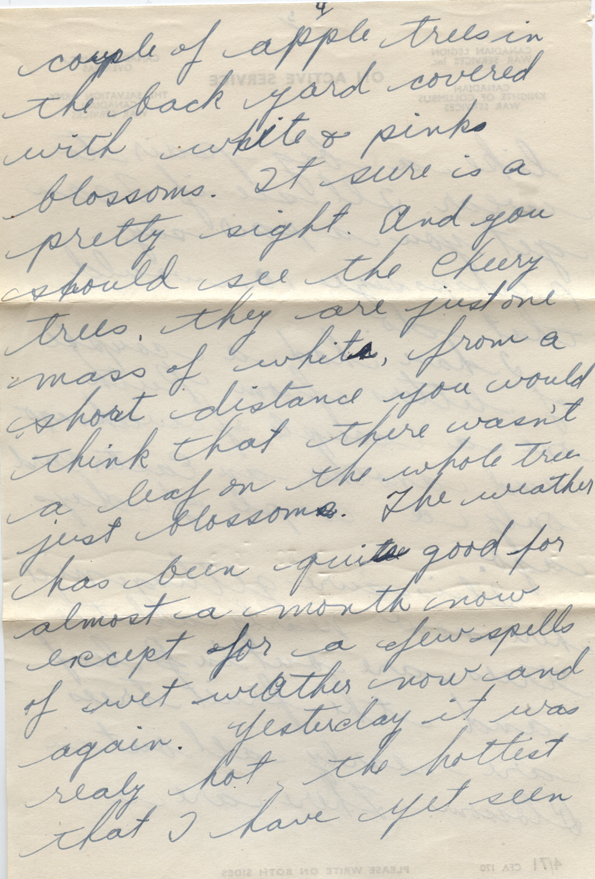 4
couple of apple trees in
the back yard covered
with white & pink
blossoms. It sure is a
pretty sight. And you
should see the Cheery
trees, they are just one
mass of white, from a
short distance you would
think that there wasn't
a leaf on the whole tree
just blossoms. The weather
has been quite good for
almost a month now
except for a few spells
of wet weather now and
again. Yesterday it was
realy hot, the hottest
that I have yet seen
4/71 CFA 170 PLEASE WRITE ON BOTH SIDES